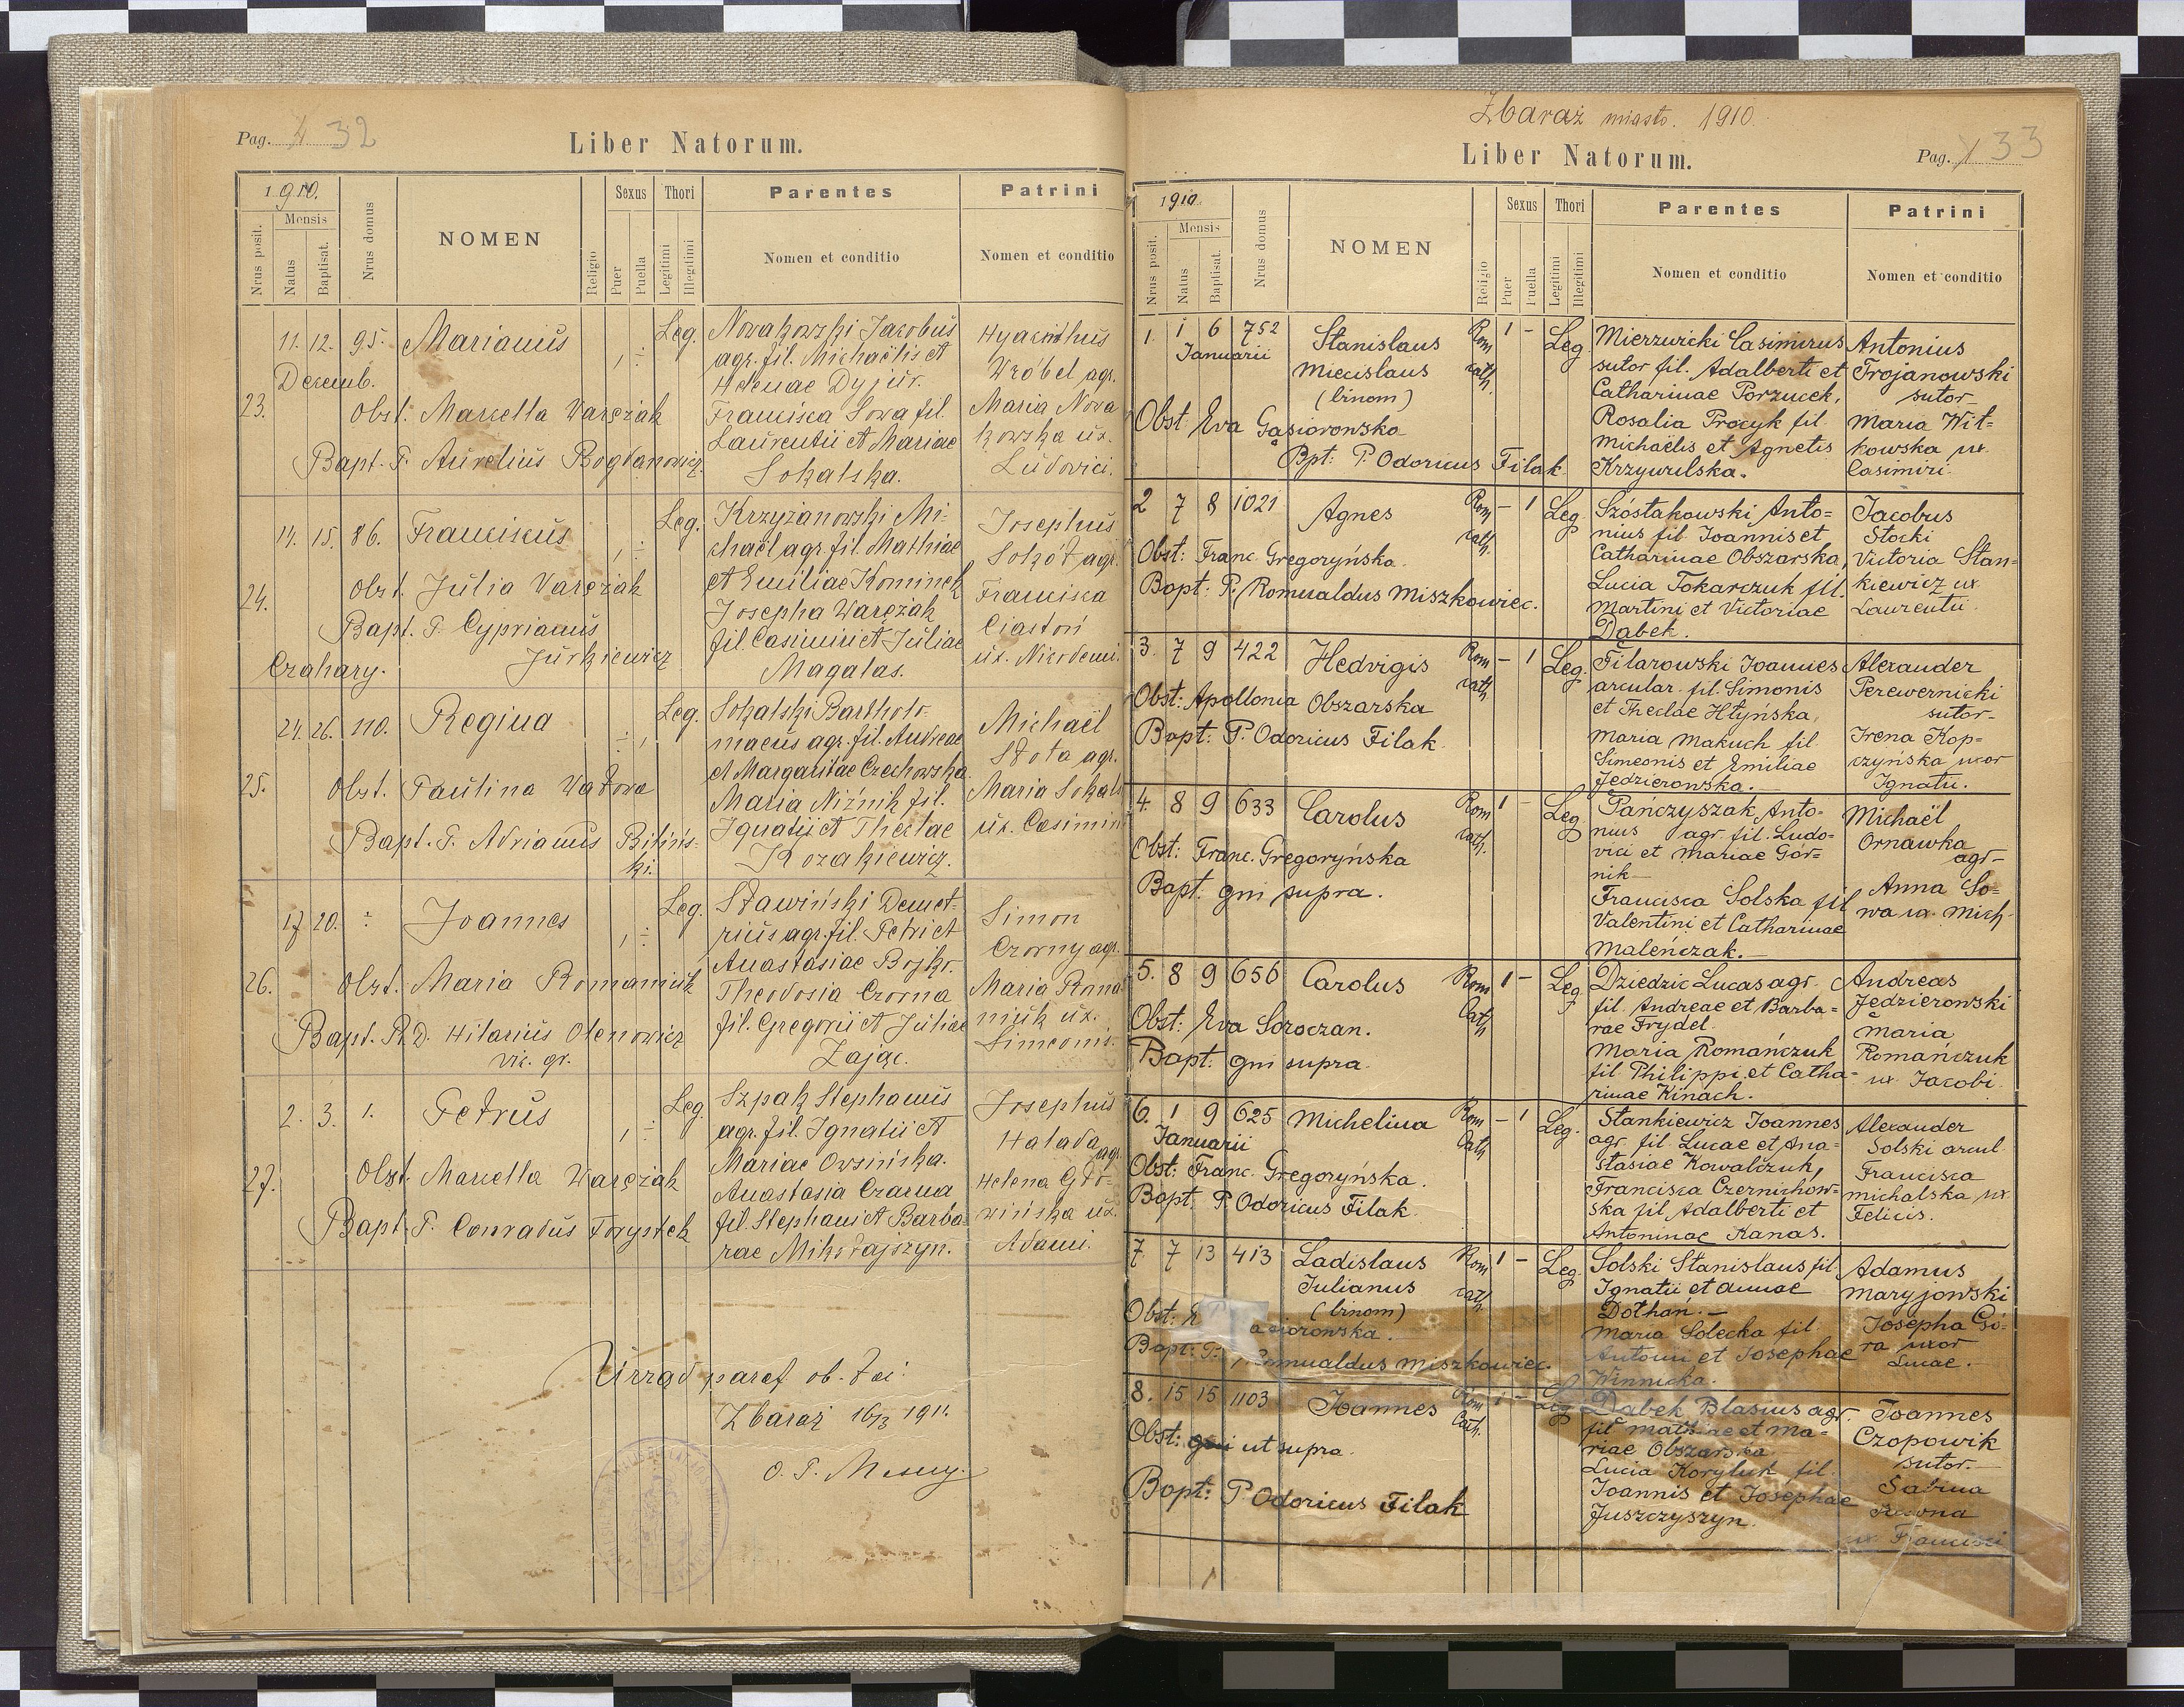 Pag. 32
Liber Natorum.
1910.
Nrus posit.
Mensis
Natus
Baptisat.
Nrus domus
NOMEN
Religio
Sexus
Puer
Puella
Thori
Legitimi
Illegitimi
Parentes
Nomen et conditio
Patrini
Nomen et conditio
23.
11. 12. 95. Marianus
Decemb.
Obst. Marcella Waręziak
Bapt. P. Aurelius Bogdanowicz
Leg.
Nowakowski Jacobus
agr. fil. Michaëlis et
Helenae Dyjur.
Francisca Sowa fil.
Laurentii et Mariae
Sokalska.
Hyacinthus
Wróbel agr.
Maria Nowa
kowska ux.
Ludovici.
24.
14. 15. 86. Franciscus
Obst. Julia Waręziak
Bapt. P. Cyprianus
Jurkiewicz
Czahary.
Leg.
Krzyżanowski Mi-
chaël agr. fil. Mathiae
et Emiliae Kominek
Josepha Waręziak
fil. Casimiri et Juliae
Magalas.
Josephus
Sokół agr.
Francisca
Ciastoń
ux. Nicodemi.
25.
24. 26. 110. Regina
Obst. Paulina Wałowa
Bapt. P. Adrianus Bilińs-
ki.
Leg.
Sokalski Bartholo-
maeus agr. fil. Andreae
et Margaritae Czechowska.
Maria Niźnik fil.
Ignatii et Theclae
Kozakiewicz.
Michaël
Słota agr.
Maria Sokals
ux. Casimiri
26.
17. 20. ÷ Joannes
Obst. Maria Romaniuk
Bapt. R. D. Hilarius Olenowicz
vic. gr.
Leg.
Sławiński Demet-
rius agr. fil. Petri et
Anastasiae Bojko.
Theodosia Czorna
fil. Gregorii et Juliae
Zając.
Simon
Czorny agr.
Maria Roma
niuk ux.
Simeonis.
27.
2. 3. 1. Petrus
Obst. Marcella Waręziak
Bapt. P. Conradus Forystek
Leg.
Szpak Stephanus
agr. fil. Ignatii et
Mariae Owsińska.
Anastasia Czarna
fil. Stephani et Barba-
rae Mikołajszyn.
Josephus
Halada agr.
Helena Gło-
wińska ux.
Adami.
Urząd paraf. ob. łai.
Zbaraż 16/3 1911.
Zbaraż miasto. 1910
Liber Natorum.
Pag. 33
1910.
Nrus posit.
Mensis
Natus
Baptisat.
Nrus domus
NOMEN
Religio
Sexus
Puer
Puella
Thori
Legitimi
Illegitimi
Parentes
Nomen et conditio
Patrini
Nomen et conditio
1. 1 6 752 Stanislaus
Januarii
Miecislaus
(binom)
Obst: Eva Gąsiorowska
Bpt: P. Odoricus Filak
Rom
cath.
1 -
Leg
Mierzwicki Casimirus
sutor fil. Adalberti et
Catharinae Porzucek,
Rosalia Procyk fil.
Michaëlis et Agnetis
Krzywulska.
Antonius
Trojanowski
sutor
Maria Wit=
kowska ux.
Casimiri.
2 7 8 1021 Agnes
Obst: Franc. Gregoryńska.
Bapt: P. Romualdus Miszkowiec.
Rom
cath.
- 1
Leg
Szóstakowski Anto=
nius fil Joannis et
Catharinae Obszarska,
Lucia Tokarczuk fil.
Martini et Victoriae
Dąbek.
Jacobus
Stocki
Victoria Stan-
kiewicz ux.
Laurentii.
3. 7 9 422 Hedvigis
Obst: Apollonia Obszarska
Bapt: P. Odoricus Filak.
Rom
cath.
- 1
Leg.
Filarowski Joannes
arcular. fil. Simonis
et Theclae Hłyńska,
Maria Makuch fil.
Simeonis et Emiliae
Jędzierowska.-
Alexander
Perewernicki
sutor-
Irena Kop-
czyńska uxor
Ignatii.
4. 8 9 633 Carolus
Obst: Franc. Gregoryńska
Bapt: qui supra.
Rom
cath.
1 -
Leg
Pańczyszak Anto-
nius agr. fil. Ludo=
vici et Mariae Gór=
nik-
Francisca Solska fil
Valentini et Catharinae
Maleńczak.-
Michaël
Ornawka
agr-
Anna So=
wa ux. Mich-
5. 8 9 656 Carolus
Obst: Eva Soroczan.
Bapt: qui supra.
Rom
Cath
1 -
Leg
Dziedzic Lucas agr.
fil. Andreae et Barba=
rae Frydel.
Maria Romańczuk
fil. Philippi et Catha-
rinae Kinach.
Andreas
Jędzierowski
Maria
Romańczuk
ux. Jacobi.
6. 1 9 625 Michelina
Januarii
Obst: Franc. Gregoryńska.
Bapt: P. Odoricus Filak.
Rom
Cath
- 1
Leg.
Stankiewicz Joannes
agr. fil. Lucae et Ana=
stasiae Kowalczuk,
Francisca Czernichow-
ska fil. Adalberti et
Antoninae Kanas.
Alexander
Solski arcul.
Francisca
Michalska ux.
Felicis.
7. 7 13 413 Ladislaus
Julianus
(binom)
Obst: siorowska.
Bapt: P. Romualdus Miszkowiec.
Rom
cath.
1 -
Leg
Solski Stanislaus fil.
Ignatii et Annae
Dothań.-
Maria Solecka fil.
Antonii et Josephae
Winnicka.
Adamus
Maryjowski
Josepha Gó=
ra uxor
Lucae.
8. 15 15 1103 Joannes
Obst: ut supra.
Bapt: P. Odoricus Filak
Rom
Cath.
1 -
Leg
Dąbek Blasius agr.
fil Mathiae et Ma=
riae Obszarska
Lucia Koryluk fil.
Joannis et Josephae
Juszczyszyn.
Joannes
Czopowik
sutor.-
Sabina
ux Francisci